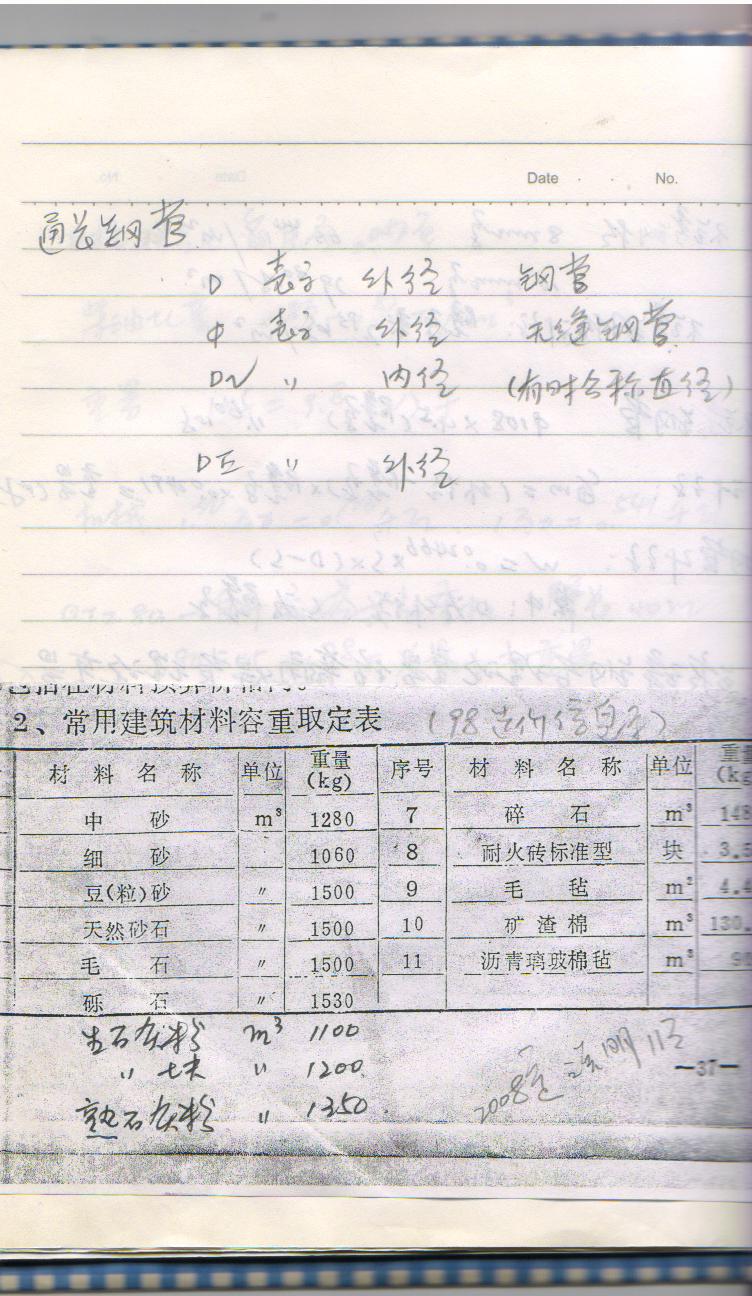 Date No.
通长钢管
D 表示 外径 钢管
Φ 表示 外径 无缝钢管
DN 〃 内径 (有时公称直径)
DE 〃 外径
2、常用建筑材料容重取定表 (98造价信息)
材料名称 单位 重量(kg) 序号 材料名称 单位 重量(kg)
中砂 m³ 1280 7 碎石 m³ 148
细砂 1060 8 耐火砖标准型 块 3.5
豆(粒)砂 〃 1500 9 毛毡 m² 4.4
天然砂石 〃 1500 10 矿渣棉 m³ 130.
毛石 〃 1500 11 沥青璃玻棉毡 m³
砾石 〃 1530
生石灰粉 m³ 1100
〃 块 〃 1200
熟石灰粉 〃 1350
2008
—37—